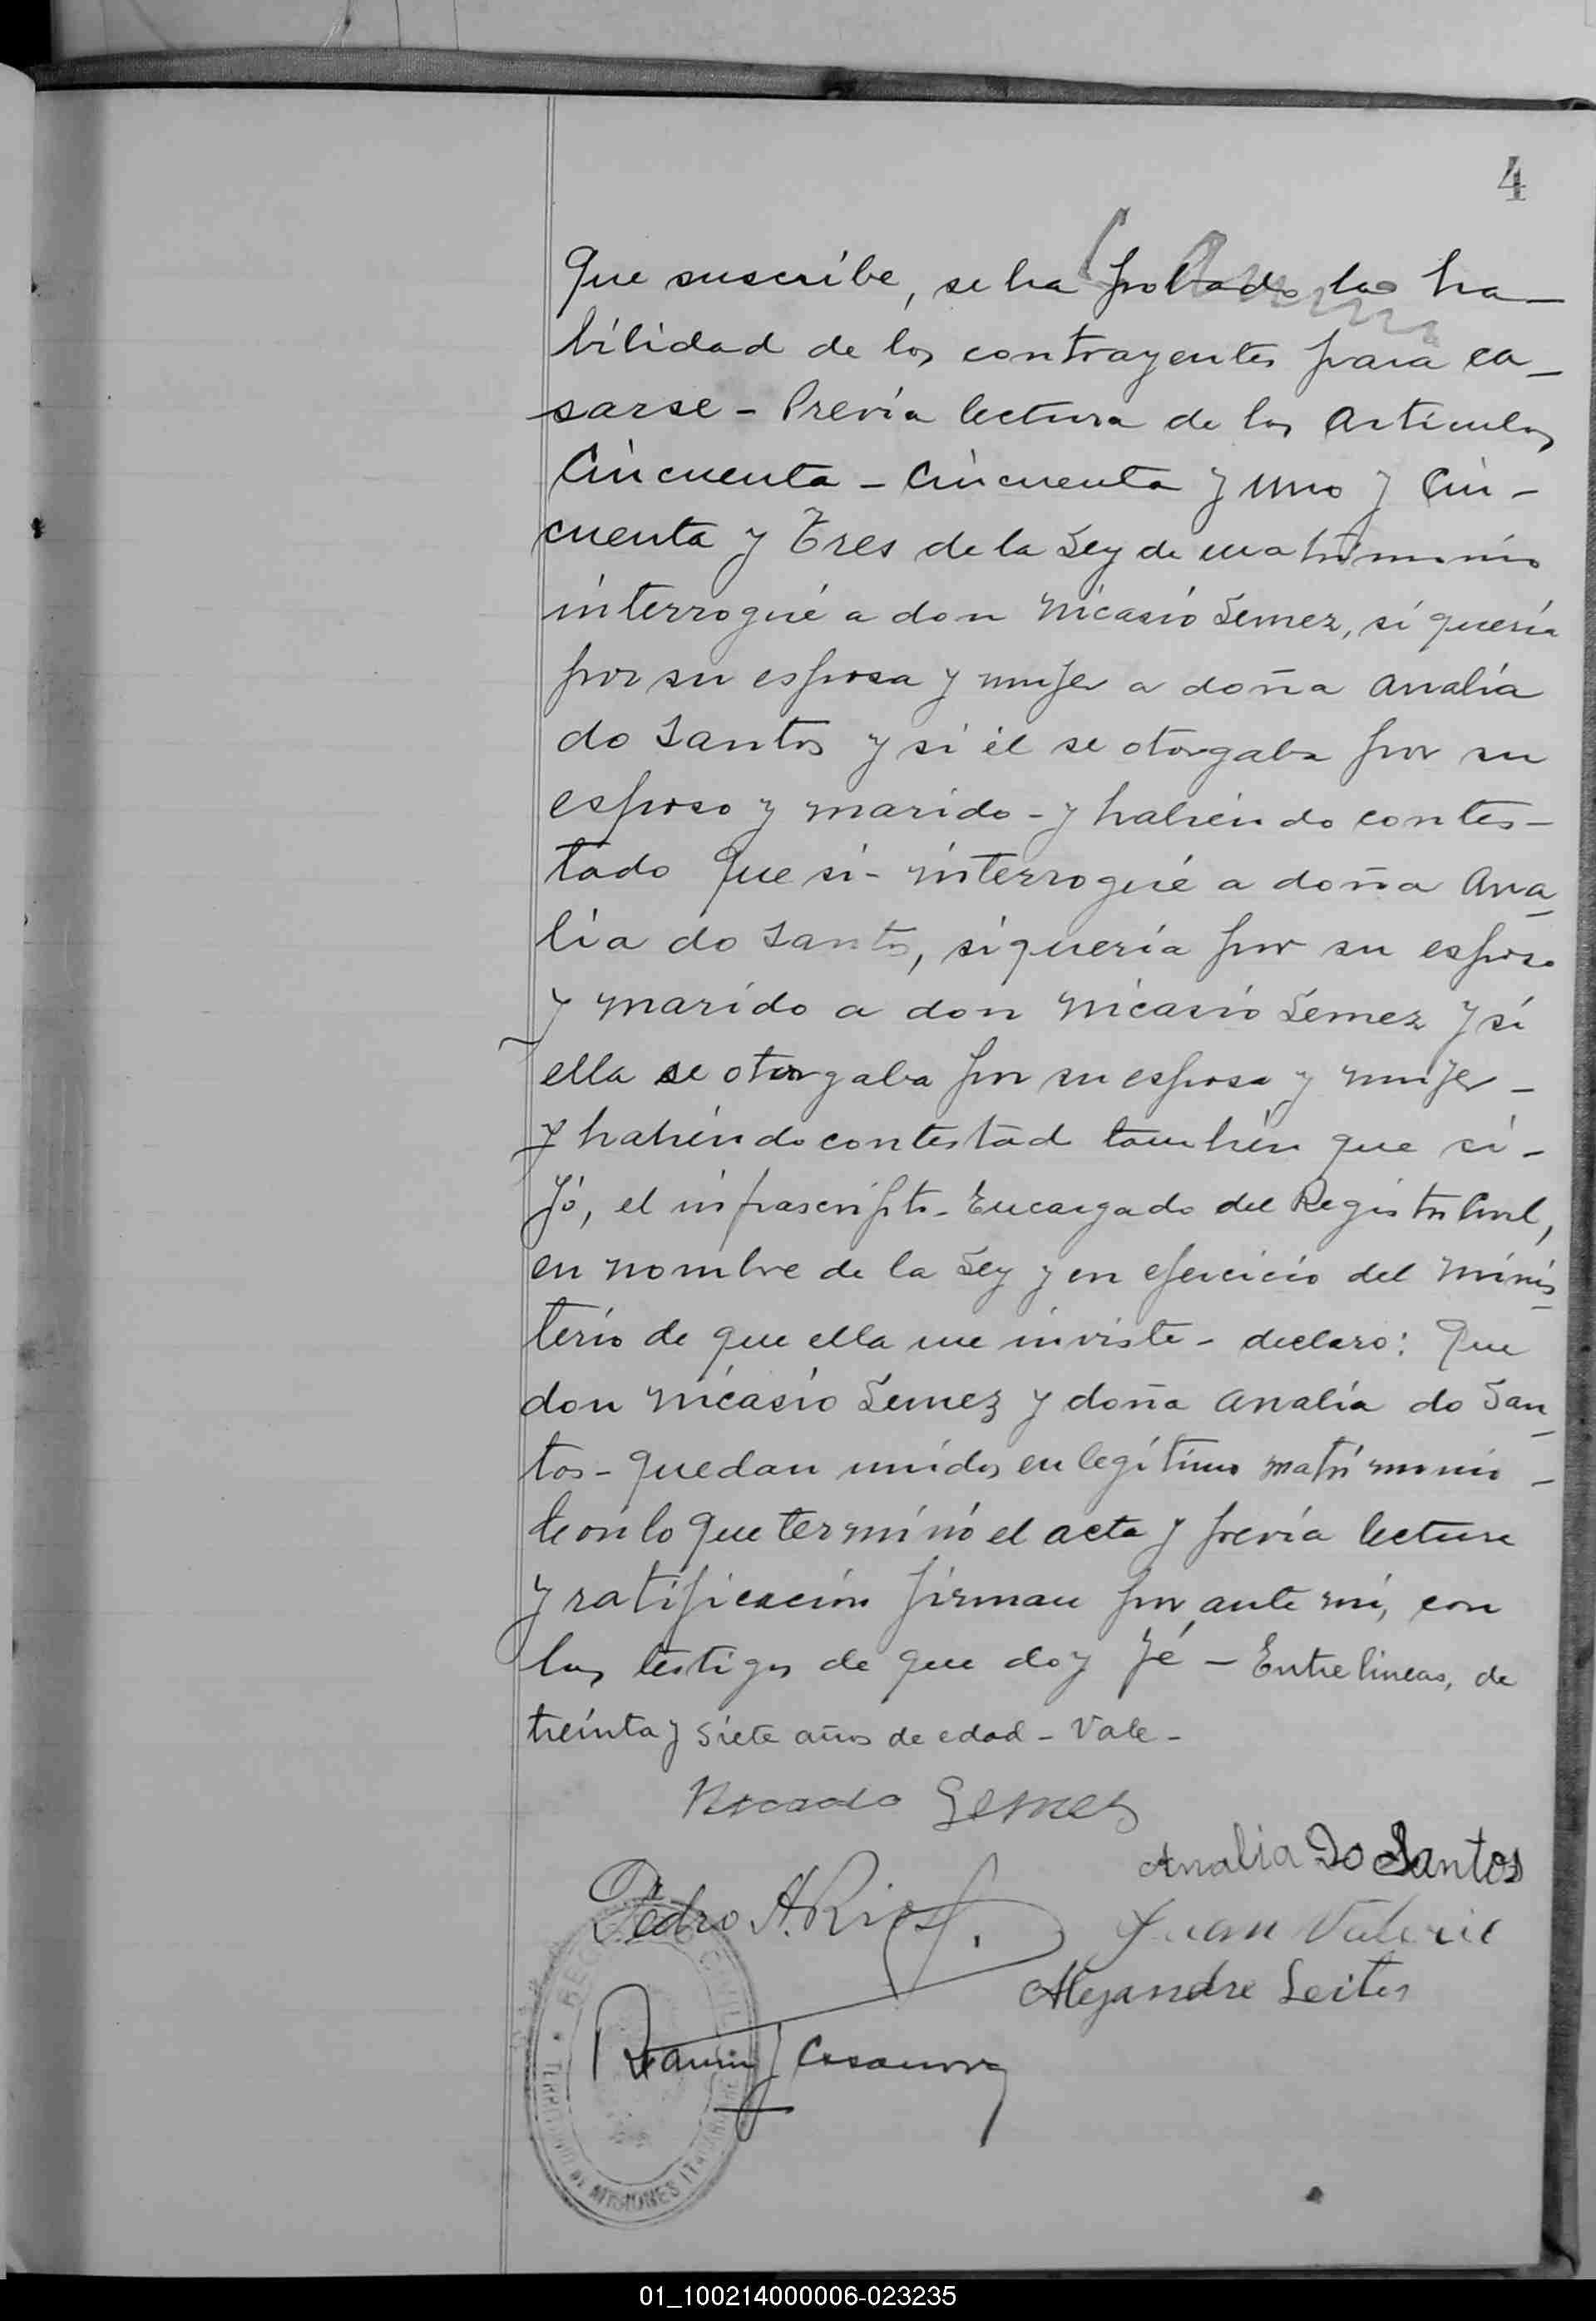 4
Que suscribe, se ha probado la ha-
bilidad de los contrayentes para ca-
sarse - Previa lectura de los Articulos
Cincuenta - Cincuenta y uno y Cin-
cuenta y Tres de la Ley de matrimonio
interrogué a don Nicasio Semez, si quería
por su esposa y mujer a doña Analía
do Santos y si él se otorgaba por su
esposo y marido - y habiendo contes-
tado que si - interrogué a doña Ana-
lia do Santos, si quería por su esposo
y marido a don Nicasio Semez y si
ella se otorgaba por su esposa y mujer -
y habiendo contestad también que si -
Yó, el infrascripto - Encargado del Registro Civil,
en nombre de la Ley y en ejercicio del Minis-
terio de que ella me inviste - declaro: Que
don Nicasio Semez y doña Analía do San-
tos - quedan unidos en legítimo matrimonio -
Con lo que terminó el acta y previa lectura
y ratificación firman por ante mí, con
los testigos de que doy fé - Entre lineas, de
treinta y siete años de edad - Vale -
Semes
Analia Do Santos
Pedro A. Rios
Juan Valerie
Alejandre Leites
Ramin J Casanova
REGISTRO CIVIL
TERRITORIO DE MISIONES
01_100214000006-023235